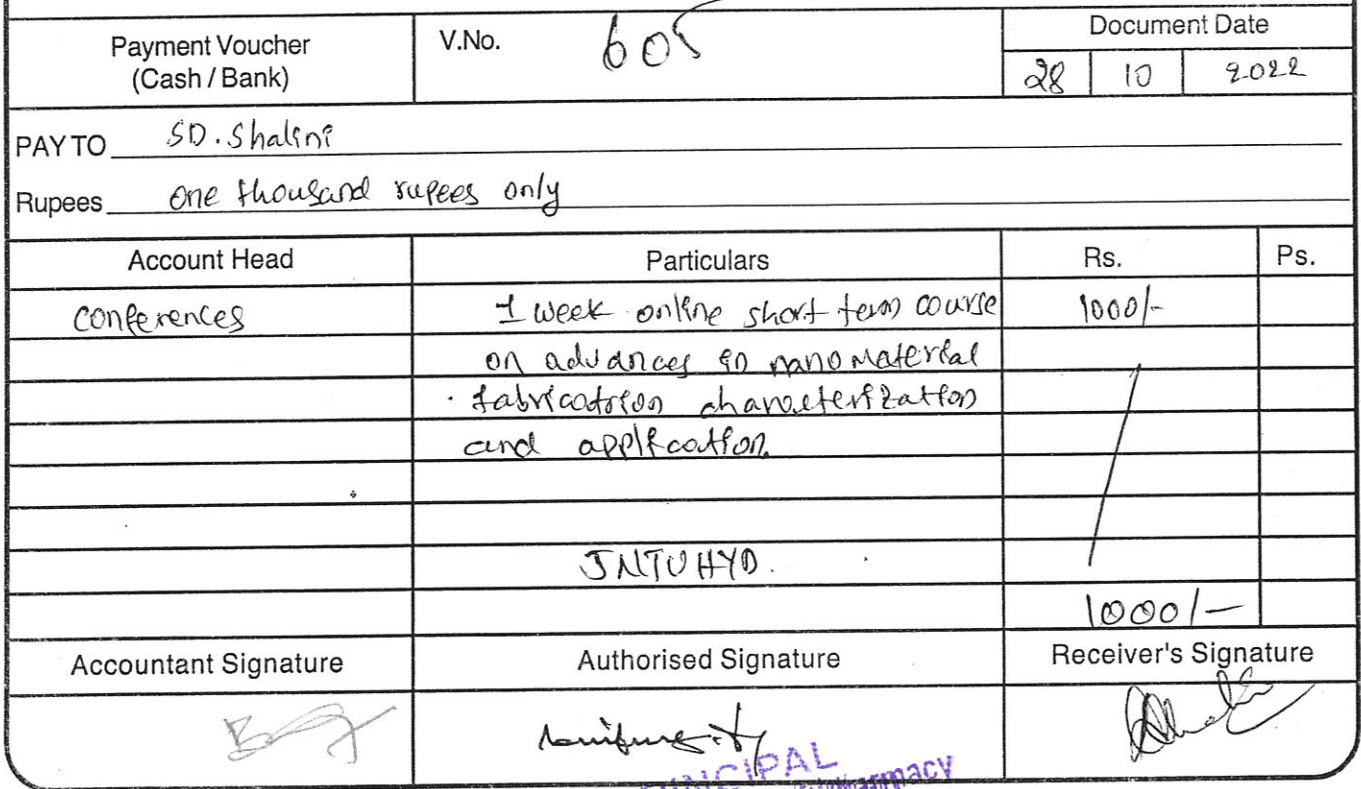 Payment Voucher
(Cash / Bank)
V.No. 605
Document Date
28 10 2022
PAY TO SD. Shalini
Rupees one thousand rupees only
Account Head Particulars Rs. Ps.
Conferences 1 week online short term course 1000/-
on advances in nano material
fabrication characterization
and application.
JNTUHYD.
1000/-
Accountant Signature Authorised Signature Receiver's Signature